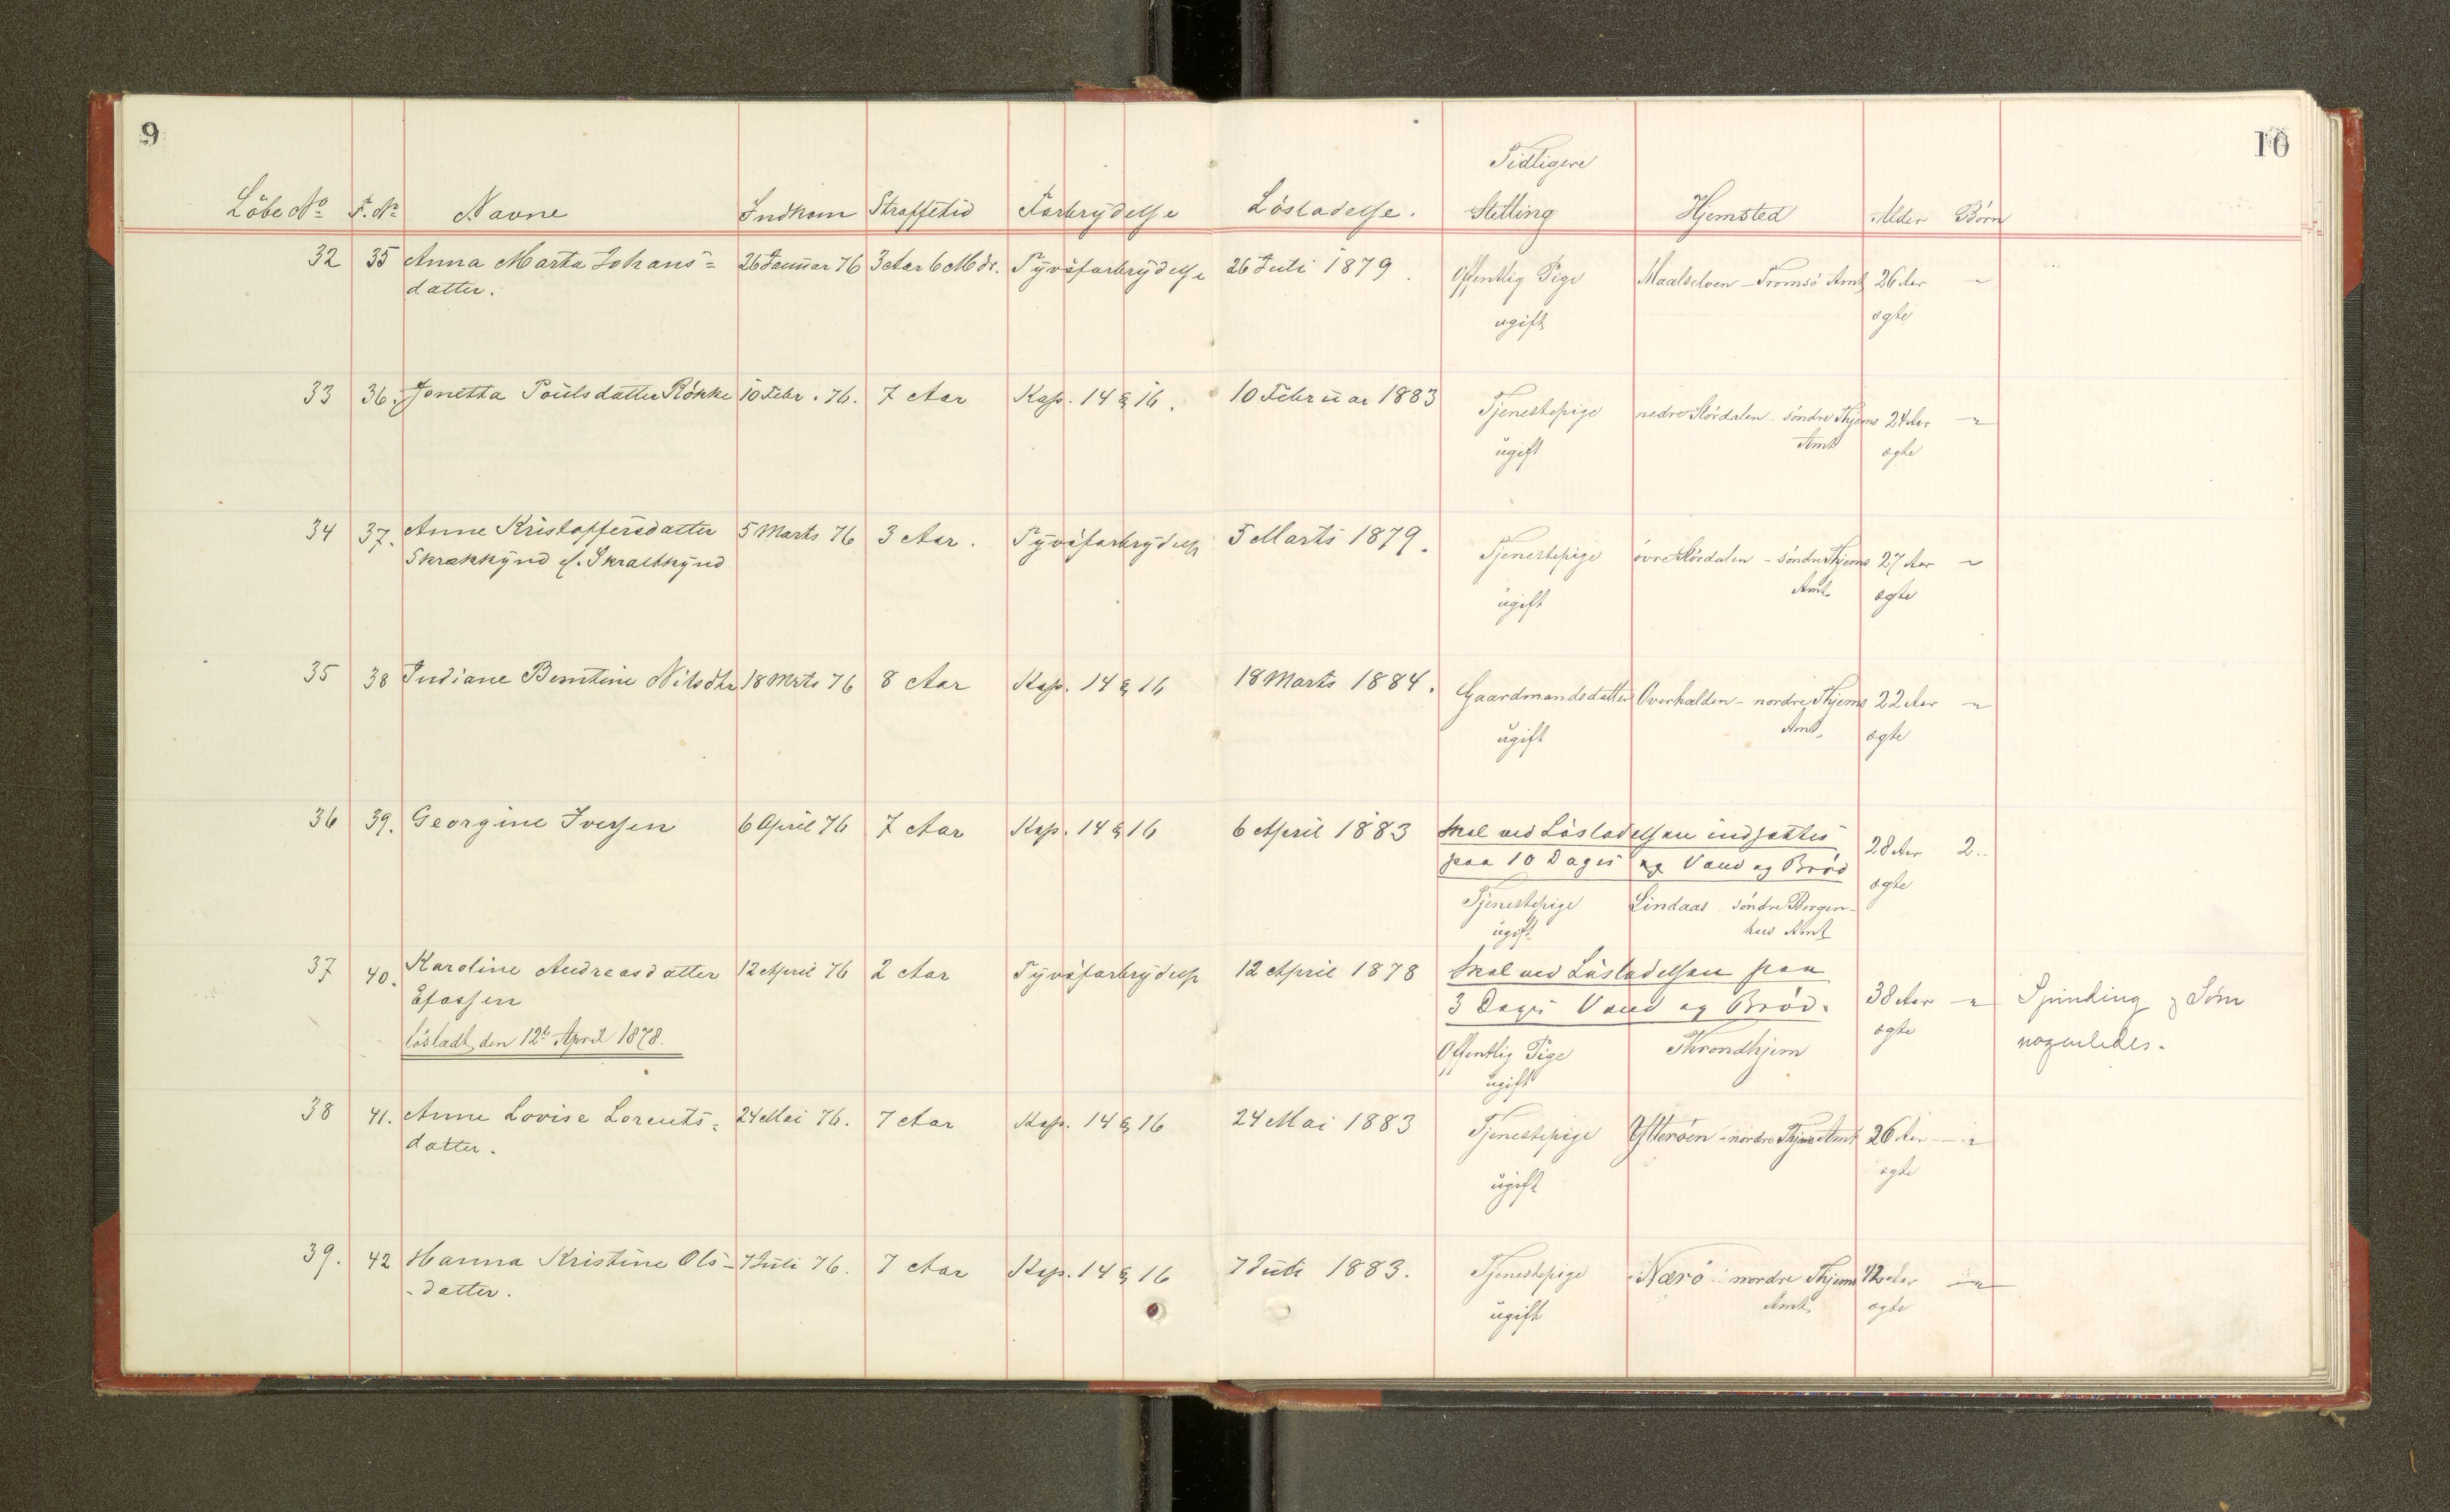 9
10
Tidligere
Löbe No F. No Navne Indkom Straffetid Forbrydelse Lösladelse. Stilling Hjemsted Alder Börn
32 35 Anna Marta Johans= 26 Januar 76 3 Aar 6 Mdr. Tyvsforbrydelse 26 Juli 1879. Offentlig Pige Maalselven - Tromsö Amt 26 Aar "
datter. ugift ægte
33 36. Jonetta Poulsdatter Rökke 10 Febr. 76. 7 Aar Kap. 14 § 16. 10 Februar 1883 Tjenestepige nedre Stördalen - söndre Thjems 24 Aar "
Amt
ugift ægte
34 37. Anne Kristoffersdatter 5 Marts 76 3 Aar. Tyvsforbrydelse 5 Marts 1879. Tjenestepige övre Stördalen - söndre Thjems 27 Aar "
Skrækkynd
Amt.
ugift ægte
35 38 Indiane Berntine Nilsdtr 18 Mrts 76 8 Aar Kap. 14 § 16 18 Marts 1884. Gaardmandsdatter Overhalden - nordre Thjems 22 Aar "
Amt.
ugift ægte
36 39. Georgine Iversen 6 April 76 7 Aar Kap. 14 § 16 6 April 1883 Skal ved Lösladelsen indsættes 28 Aar 2.
paa 10 Dages Vand og Bröd
ægte
Tjenestepige Lindaas söndre Bergen-
ugift hus Amt
37 40. Karoline Andreasdatter 12 April 76 2 Aar Tyvsforbrydelse 12 April 1878 Skal ved Lösladelsen paa
Efassen 3 Dages Vand og Bröd. 38 Aar " Spinding og Söm
lösladt den 12te April 1878. Offentlig Pige Throndhjem ægte nogenledes.
ugift
38 41. Anne Lovise Lorents= 24 Mai 76. 7 Aar Kap. 14 § 16 24 Mai 1883 Tjenestepige Ytteröen - nordre Thjems Amt 26 Aar - "
datter. ugift ægte
39. 42 Hanna Kristine Ols- 7 Juli 76. 7 Aar Kap. 14 § 16 7 Juli 1883. Tjenestepige Nærö - nordre Thjems 42 Aar "
-datter. Amt. ægte
ugift